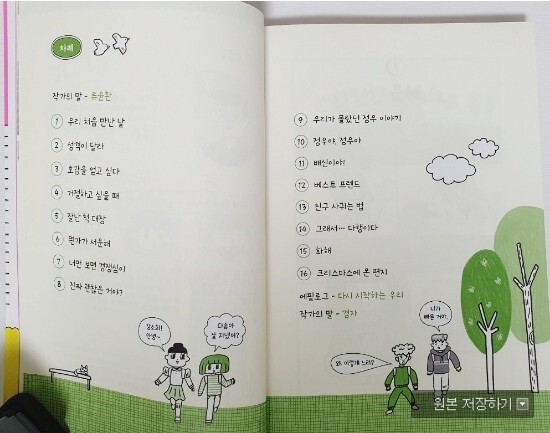 차례
작가의 말 - 류윤환
1 우리 처음 만난 날
2 성격이 달라
3 호감을 얻고 싶다
4 거절하고 싶을 때
5 잘난 척 대장
6 뭔가가 서운해
7 너만 보면 경쟁심이
8 진짜 괜찮은 거야?
김소희!
안녕~
다음아
잘 지냈어?
9 우리가 몰랐던 정우 이야기
10 정우야, 정우야
11 배신이야!
12 베스트 프렌드
13 친구 사귀는 법
14 그래서… 다행이다
15 화해
16 크리스마스에 온 편지
에필로그 - 다시 시작하는 우리
작가의 말 - 경자
니가
빠른 거야.
왜 이렇게 느려?
원본 저장하기